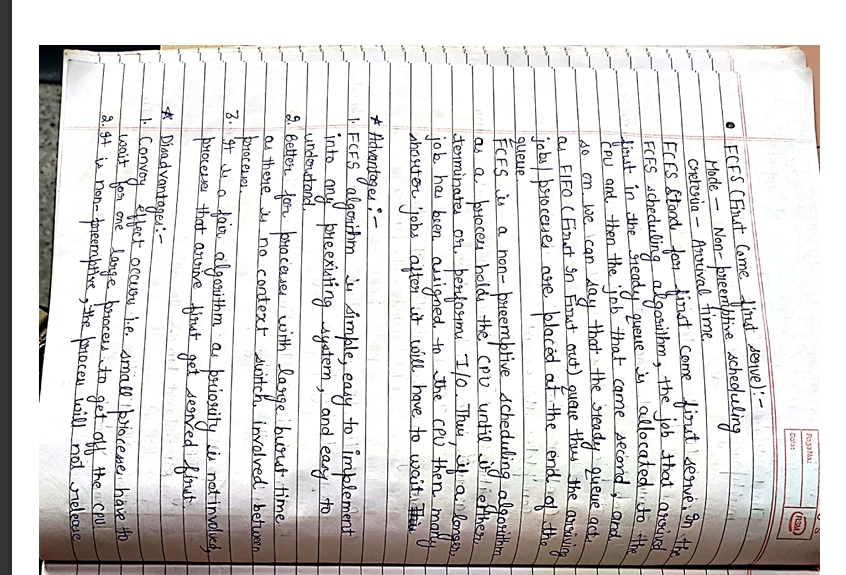 Page No.:
Date:
• FCFS (First Come first serve):-
Mode - Non-preemptive scheduling
Creteria - Arrival time.
FCFS Stand for first come first serve. In the
FCFS scheduling algorithm, the job that arrived
first in the ready queue is allocated to the
CPU and then the job that came second, and
so on we can say that the ready queue acts
as FIFO (First In First out) queue thus the arriving
jobs/processes are placed at the end of the
queue
FCFS is a non-preemptive scheduling algorithm
as a process holds the CPU until it either
terminates or performs I/O. Thus, if a longer
job has been assigned to the CPU then many
shorter jobs after it will have to wait.
* Advantages:-
1. FCFS algorithm is simple, easy to implement
into any preexisting system, and easy to
understand.
2. Better for processes with large burst time
as there is no context switch involved between
processes.
3. It is a fair algorithm as priority is not involved,
processes that arrive first get served first
* Disadvantages:-
1. Convoy effect occurs i.e. small processes have to
wait for one large process to get off the CPU.
2. It is non-preemptive, the process will not release